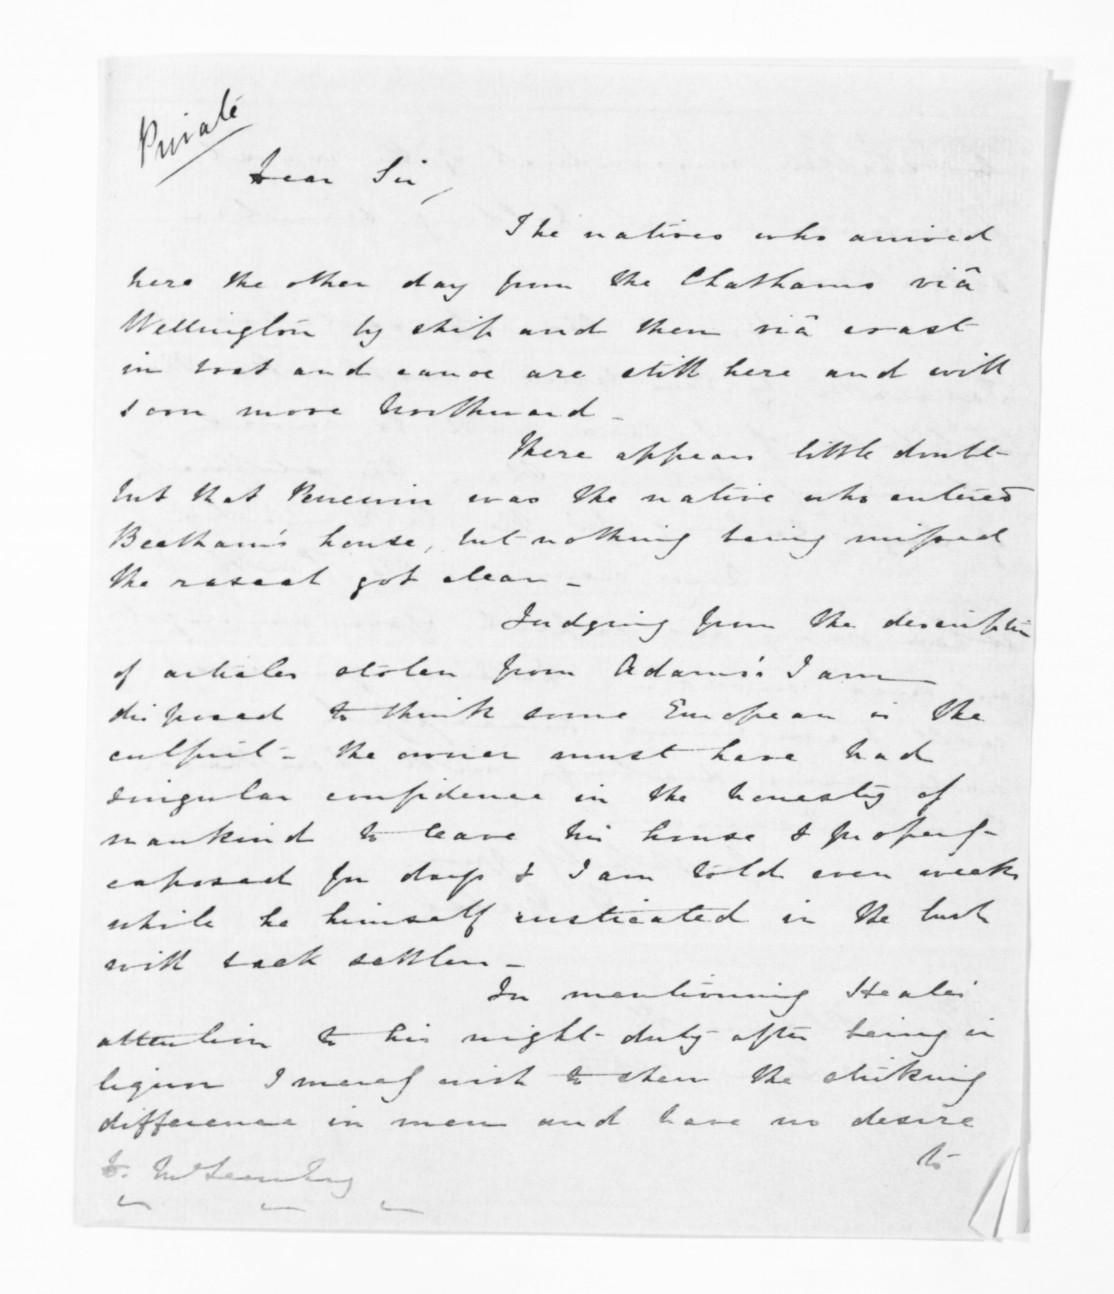 Private
Dear Sir,
The natives who arrived
here the other day from the Chathams viâ
Wellington by ship and then viâ coast
in boat and canoe are still here and will
soon move Northward_
There appears little doubt
but that was the native who entered
Beetham's house, but nothing being missed
the rascal got clear_
Judging from the description
of articles stolen from Adams's I am
disposed to think some European is the
culprit_ the owner must have had
singular confidence in the honesty of
mankind to leave his house & property
exposed for days & I am told even weeks
while he himself rusticated in the bush
with settlers_
In mentioning
attention to his night-duty after being in
liquor I merely wish to shew the striking
difference in men and have no desire
to